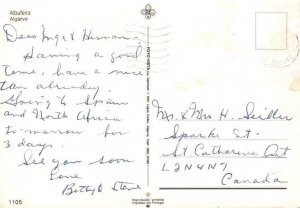 Albufeira
Algarve
Dear Inga & Herman.
Having a good
time, have a nice
tan already.
Going to Spain
and North Africa
tomorrow for
3 days.
See you soon
Love
Betty & Steve
1105
Mr. & Mrs H. Seiller
Sparks St.
St Catharine Ont
L2N4N7
Canada
Reprodução proibida
Impresso em Portugal